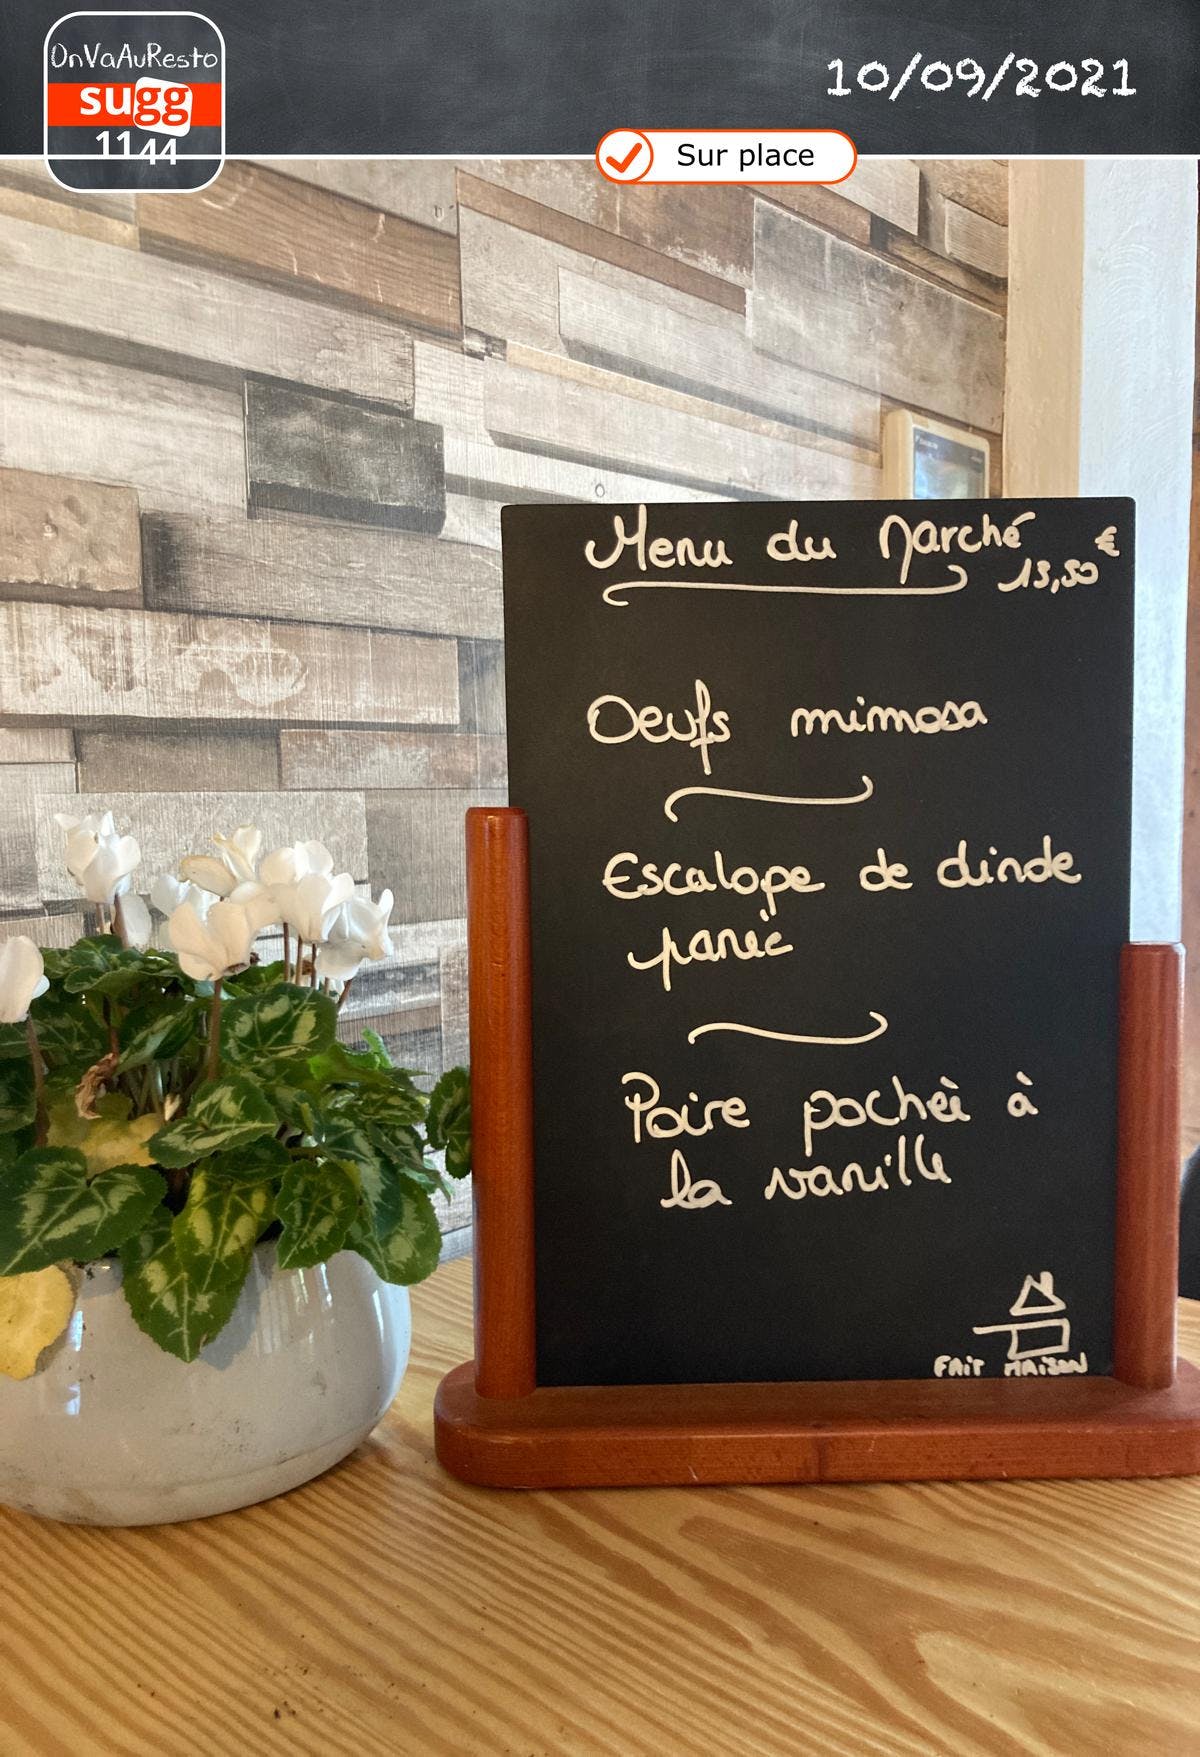 OnVaAuResto
sugg
1144
10/09/2021
Sur place
Menu du Marché €
13,50
Oeufs mimosa
Escalope de dinde
panée
Poire pochée à
la vanille
FAIT MAISON